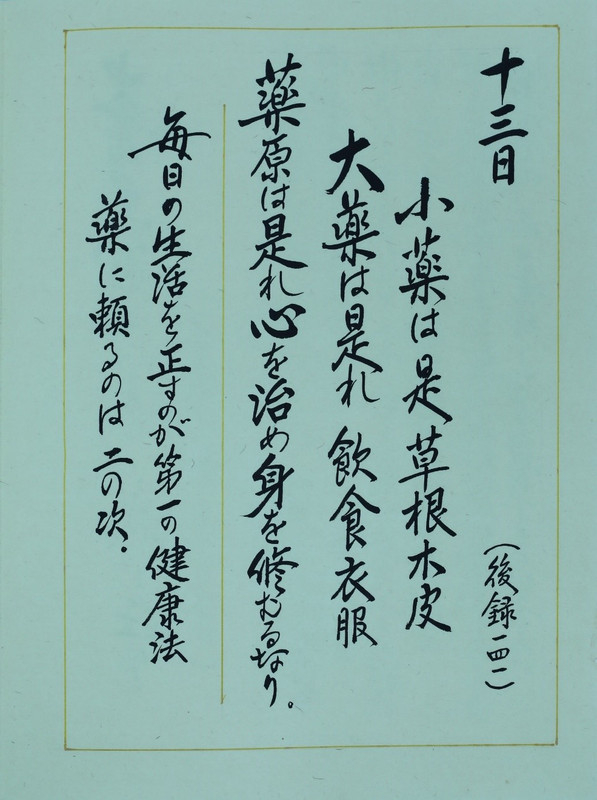 十三日
（後録一四一）
小薬は是草根木皮
大薬は是れ飲食衣服
薬原は是れ心を治め身を修むるなり。
毎日の生活を正すのが第一の健康法
薬に頼るのは二の次．